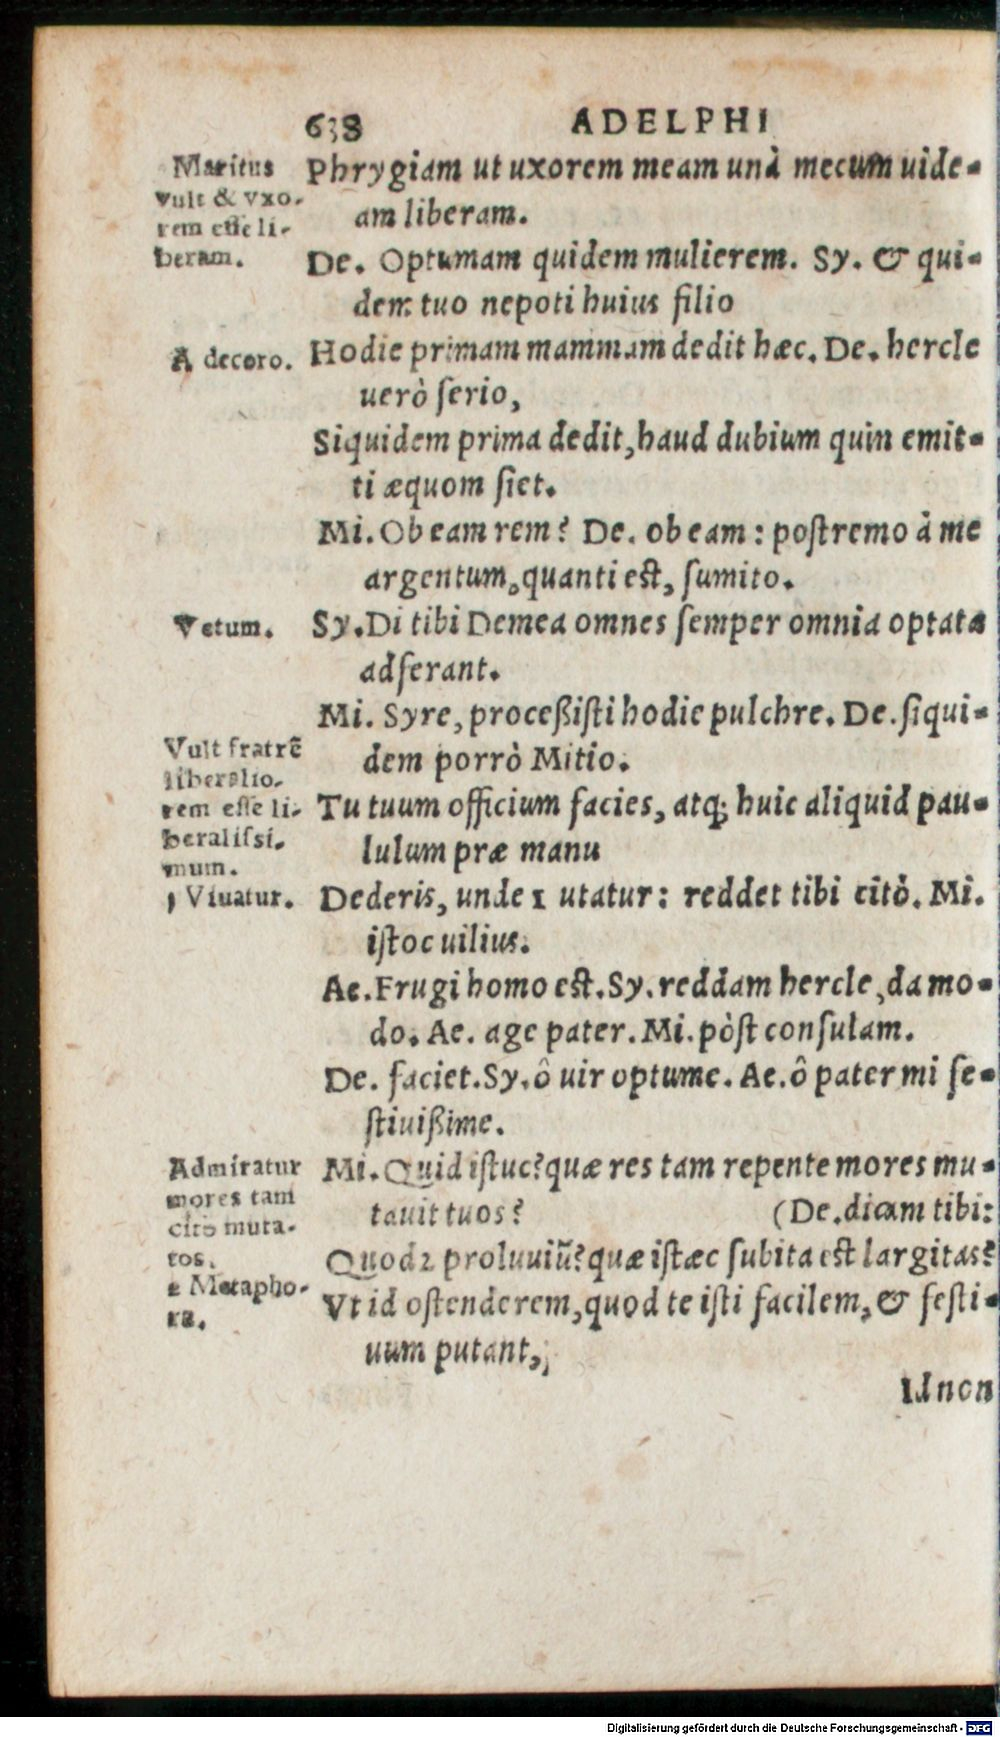 638 ADELPHI
Maritus
vult & vxo-
rem esse li-
beram.
Phrygiam ut uxorem meam unà mecum uide-
am liberam.
De. Optumam quidem mulierem. Sy. & qui-
dem tuo nepoti huius filio
A decoro.
Hodie primam mammam dedit hæc. De. hercle
uerò ſerio,
Siquidem prima dedit, haud dubium quin emit-
ti æquom ſiet.
Mi. Ob eam rem? De. ob eam: poſtremo à me
argentum, quanti eſt, ſumito.
Votum.
Sy. Di tibi Demea omnes ſemper omnia optata
adferant.
Mi. Syre, proceßiſti hodie pulchre. De. ſiqui-
dem porrò Mitio.
Vult fratrẽ
liberalio-
rem eſſe li-
beraliſsi-
mum.
1 Viuatur.
Tu tuum officium facies, atq; huic aliquid pau-
lulum præ manu
Dederis, unde 1 utatur: reddet tibi citò. Mi.
iſtoc uilius.
Ae. Frugi homo eſt. Sy. reddam hercle, da mo-
do. Ae. age pater. Mi. pòſt conſulam.
De. faciet. Sy. ô uir optume. Ae. ô pater mi fe-
ſtiuißime.
Admiratur
mores tam
cito muta-
tos.
2 Metapho-
ra.
Mi. Quid iſtuc? quæ res tam repente mores mu-
tauit tuos? (De. dicam tibi:
Quod 2 proluuiũ? quæ iſtæc ſubita eſt largitas?
Vt id oſtenderem, quod te iſti facilem, & feſti-
uum putant,
Id non
Digitalisierung gefördert durch die Deutsche Forschungsgemeinschaft - DFG